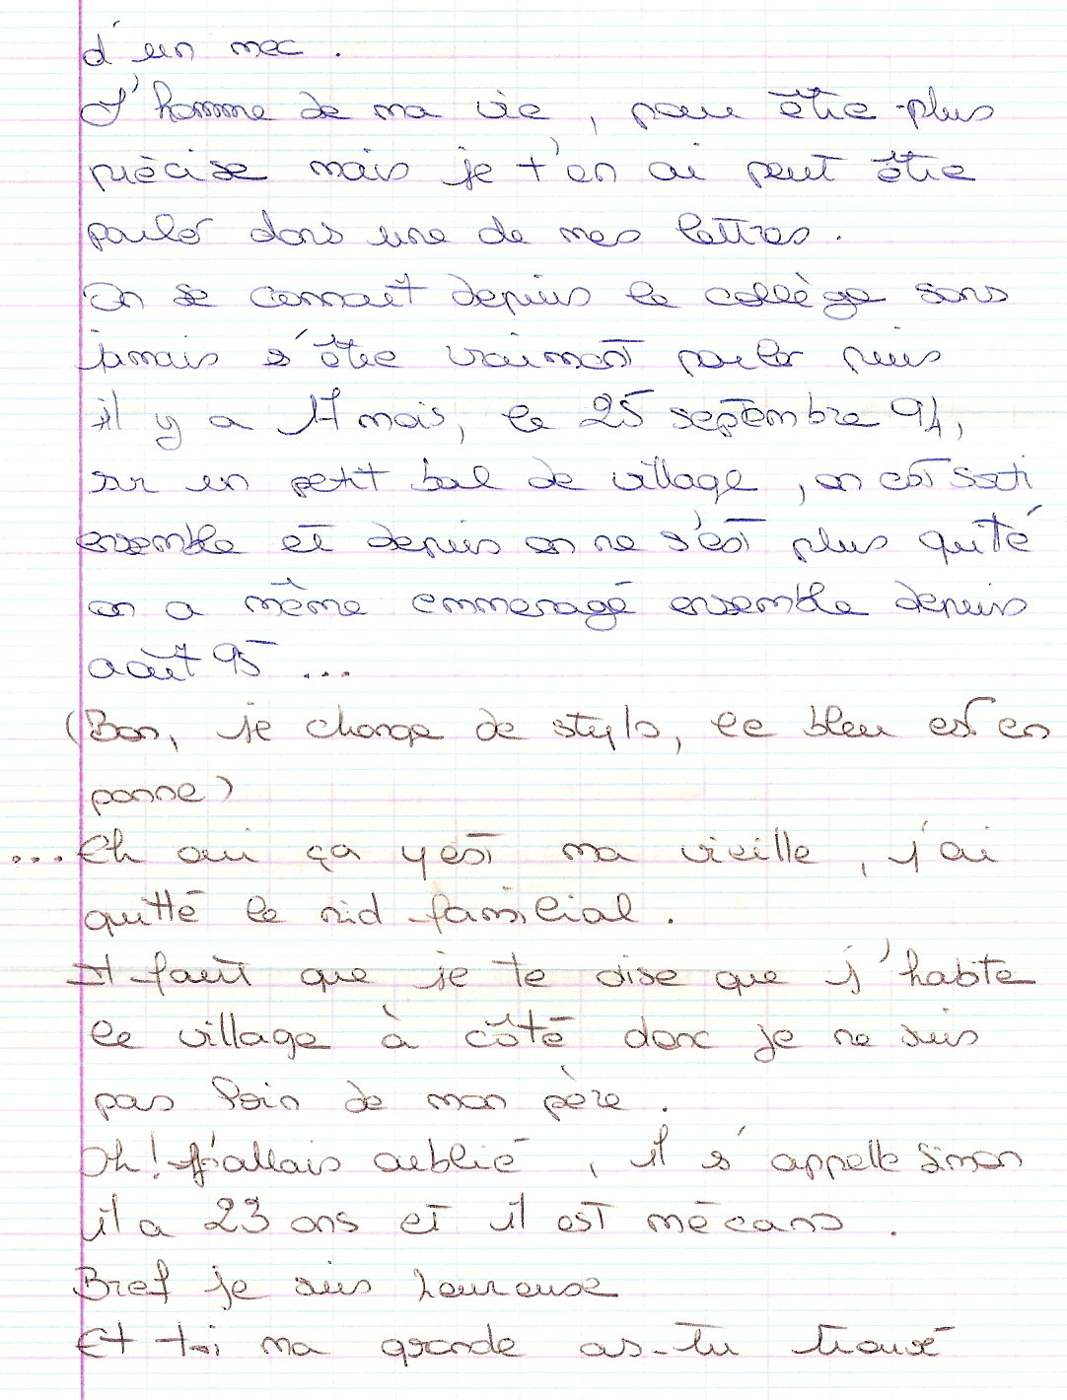 d'un mec.
L'homme de ma vie, pour être plus
précise mais je t'en ai peut être
parlé dans une de mes lettres.
On se connait depuis le collège sans
jamais s'être vraiment parler puis
il y a 17 mois, le 25 septembre 94,
sur un petit bal de village, on est sorti
ensemble et depuis on ne s'est plus quité
on a même emmenagé ensemble depuis
août 95 ...
(Bon, je change de stylo, le bleu est en
panne)
... Eh oui ça y est ma vieille, j'ai
quitté le nid familial.
Il faut que je te dise que j'habite
le village à côté donc je ne suis
pas loin de mon père.
Oh! J'allais oublié, il s'appelle Simon
il a 23 ans et il est mécano.
Bref je suis heureuse
Et toi ma grande as-tu trouvé